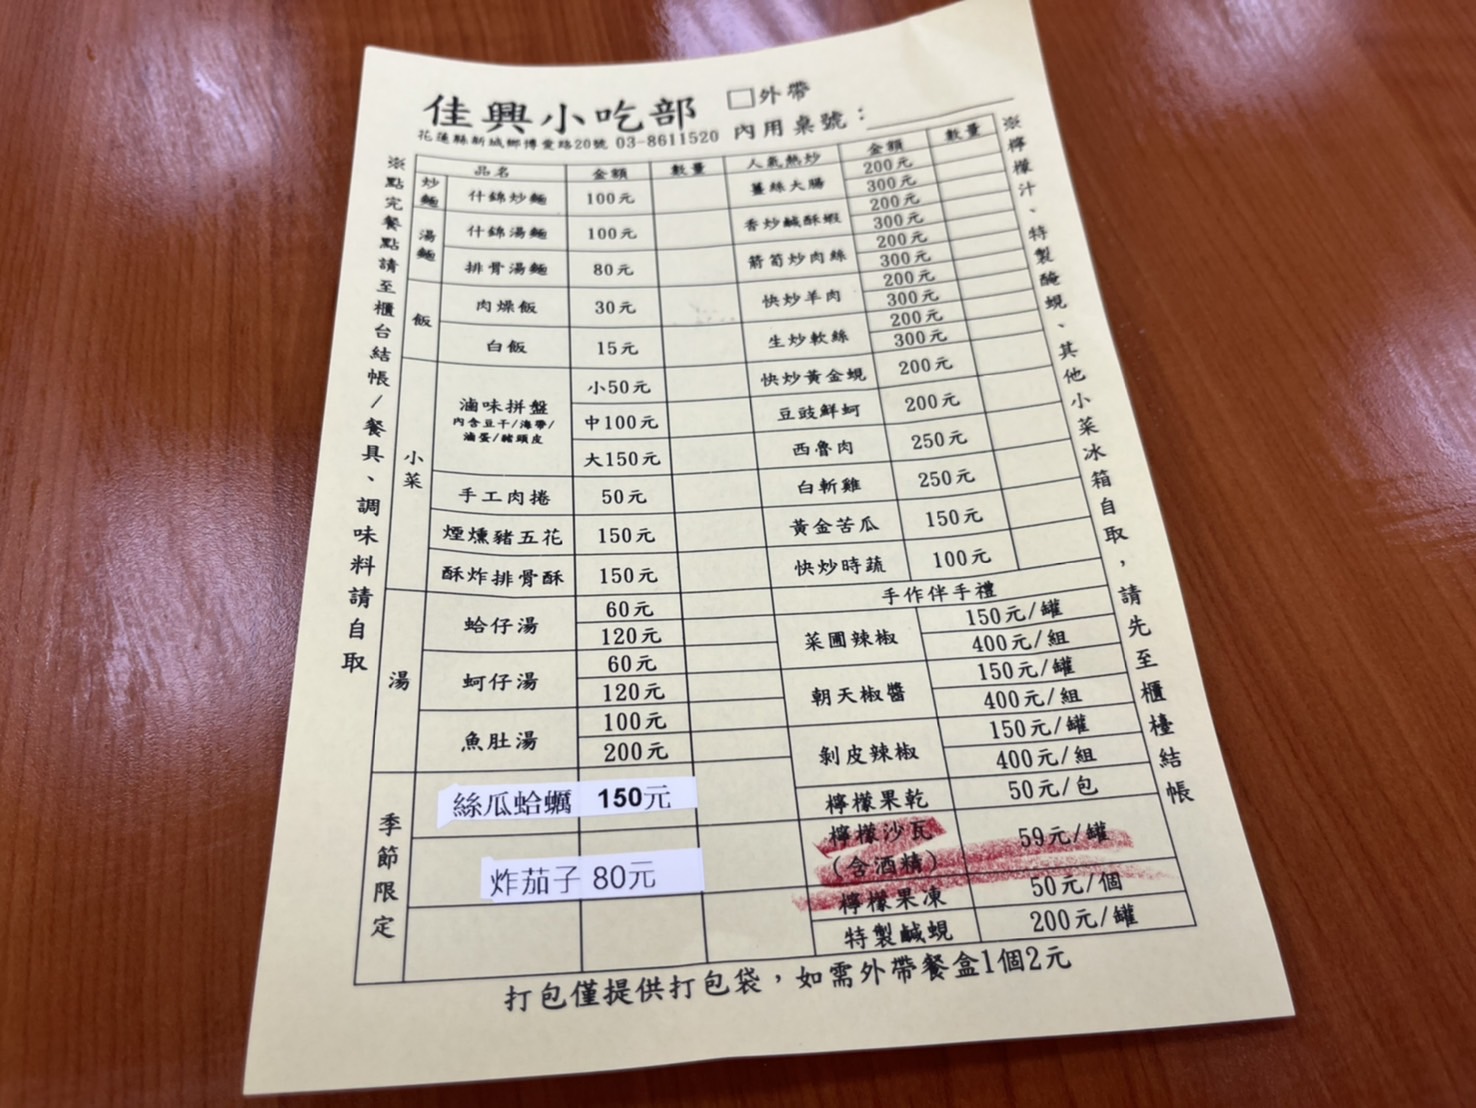 佳興小吃部
□外帶
花蓮縣新城鄉博愛路20號 03-8611520
內用桌號：
※點完餐點請至櫃台結帳/餐具、調味料請自取
品名 金額 數量
炒麵
什錦炒麵 100元
湯麵
什錦湯麵 100元
排骨湯麵 80元
飯
肉燥飯 30元
白飯 15元
小菜
滷味拼盤
內含豆干/海帶/
滷蛋/豬頭皮
小50元
中100元
大150元
手工肉捲 50元
煙燻豬五花 150元
酥炸排骨酥 150元
湯
蛤仔湯
60元
120元
蚵仔湯
60元
120元
魚肚湯
100元
200元
季節限定
絲瓜蛤蠣 150元
炸茄子 80元
人氣熱炒 金額 數量
薑絲大腸
200元
300元
香炒鹹酥蝦
200元
300元
箭筍炒肉絲
200元
300元
快炒羊肉
200元
300元
生炒軟絲
200元
300元
快炒黃金蜆 200元
豆豉鮮蚵 200元
西魯肉 250元
白斬雞 250元
黃金苦瓜 150元
快炒時蔬 100元
手作伴手禮
菜圃辣椒
150元/罐
400元/組
朝天椒醬
150元/罐
400元/組
剝皮辣椒
150元/罐
400元/組
檸檬果乾 50元/包
檸檬沙瓦
(含酒精)
59元/罐
檸檬果凍 50元/個
特製鹹蜆 200元/罐
※檸檬汁、特製醃蜆、其他小菜冰箱自取，請先至櫃檯結帳
打包僅提供打包袋，如需外帶餐盒1個2元